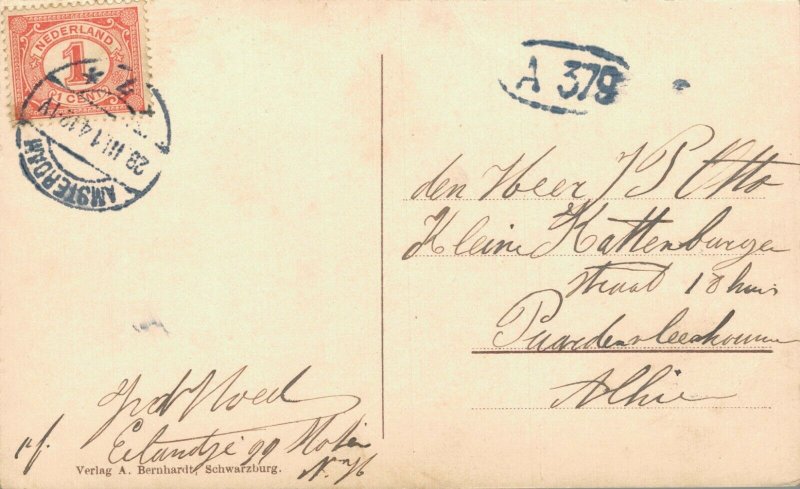 NEDERLAND
1
1 CENT
AMSTERDAM
28 III 14 12-1V
A 379
den Heer J P Otto
Kleine Kattenburger
straat 18 huis
Paardenvleeshouwer
Alhier
af.
Eilandje 99
N. 76
Verlag A. Bernhardt, Schwarzburg.